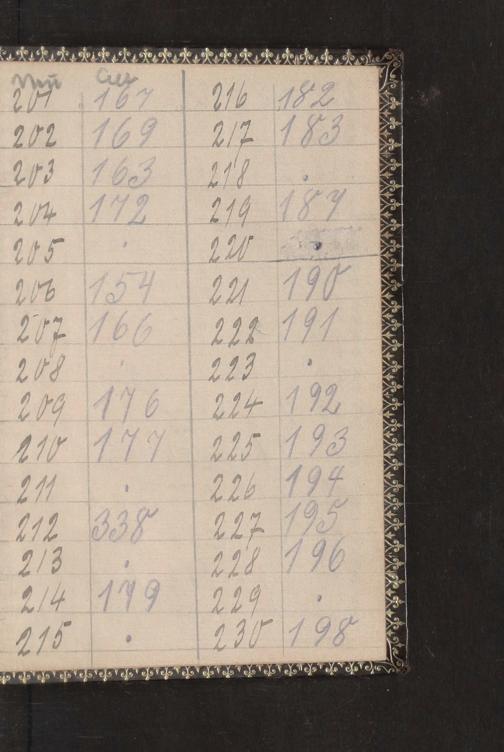 201 167 216 182
202 169 217 183
203 163 218 .
204 172 219 187
205 . 220 .
206 154 221 190
207 166 222 191
208 . 223 .
209 176 224 192
210 177 225 193
211 . 226 194
212 338 227 195
213 . 228 196
214 179 229 .
215 . 230 198